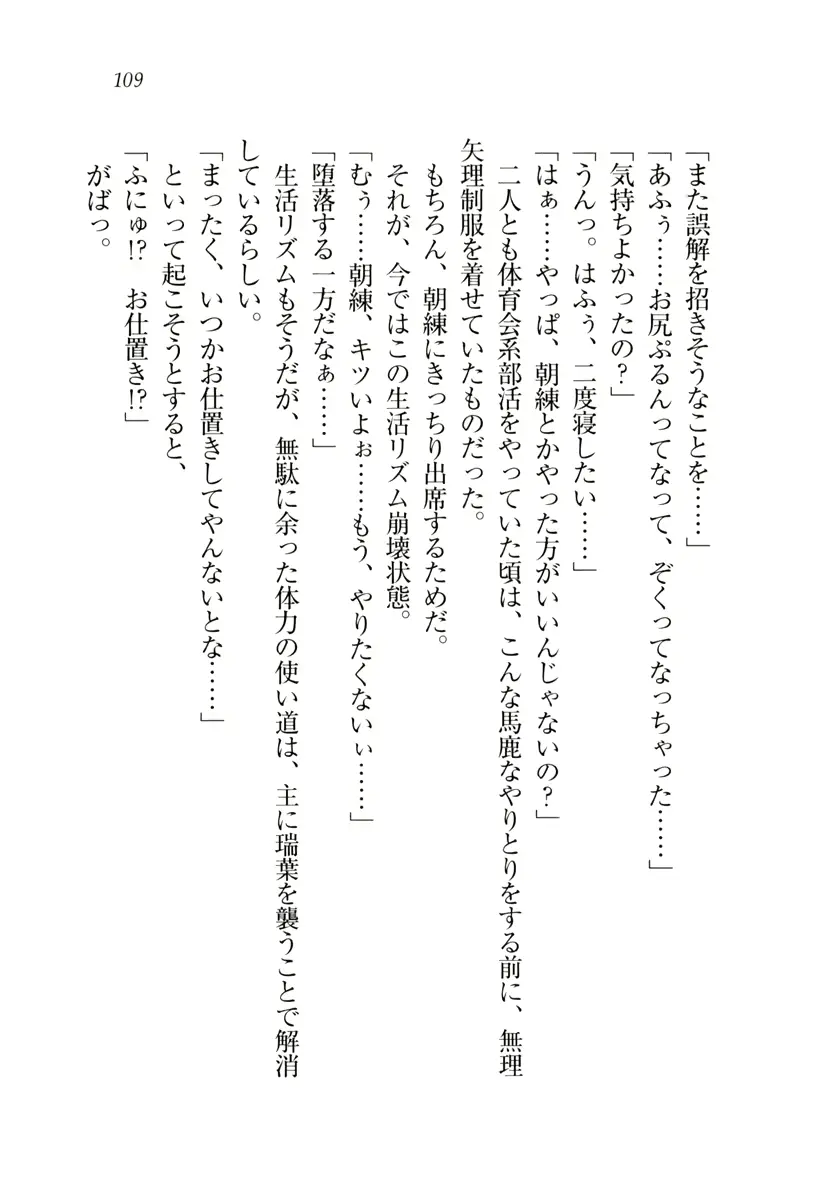 109
「また誤解を招きそうなことを……」
「あふぅ……お尻ぷるんってなって、ぞくってなっちゃった……」
「気持ちよかったの？」
「うんっ。はふぅ、二度寝したい……」
「はぁ……やっぱ、朝練とかやった方がいいんじゃないの？」
　二人とも体育会系部活をやっていた頃は、こんな馬鹿なやりとりをする前に、無理
矢理制服を着せていたものだった。
　もちろん、朝練にきっちり出席するためだ。
　それが、今ではこの生活リズム崩壊状態。
「むぅ……朝練、キツいよぉ……もう、やりたくないぃ……」
「堕落する一方だなぁ……」
　生活リズムもそうだが、無駄に余った体力の使い道は、主に瑞葉を襲うことで解消
しているらしい。
「まったく、いつかお仕置きしてやんないとな……」
　といって起こそうとすると、
「ふにゅ!?　お仕置き!?」
　がばっ。